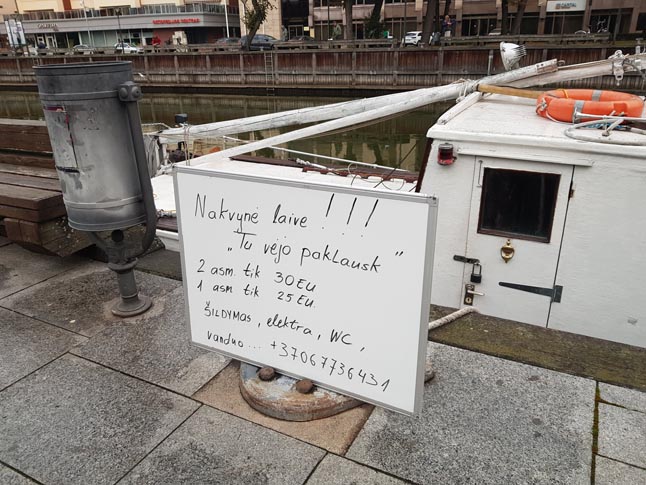 Nakvynė laive !!!
„Tu vėjo paklausk"
2 asm. tik 30EU
1 asm tik 25EU.
ŠILDYMAS, elektra, WC,
vanduo... +37067736431